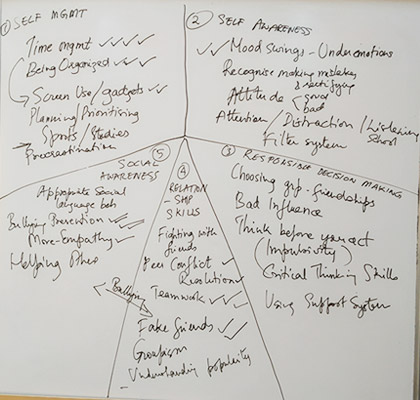 ① SELF MGMT
Time mgmt ✓ ✓ ✓ ✓
Being Organized ✓ ✓ ✓
Screen Use/gadgets ✓ ✓
Planning/Prioritising
Sports/Studies
Procrastination
② SELF AWARENESS
✓✓ Mood swings - Under emotions
Recognise making mistakes
& rectifying
Attitude good
bad
Attention/Distraction/Listening
School
Filter system
③ RESPONSIBLE DECISION MAKING
Choosing grp - friendships
Bad Influence
Think before you act
(Impulsivity)
Critical Thinking Skills
Using Support System
④
RELATION
-SHIP
SKILLS
Fighting with
friends
Peer Conflict ✓
Resolution ✓
Teamwork ✓ ✓
Bullying
Fake friends ✓ ✓
Groupism
- Understanding popularity
⑤
SOCIAL
AWARENESS
Appropriate Social
language beh
Bullying Prevention ✓ ✓
More-Empathy ✓
Helping Others